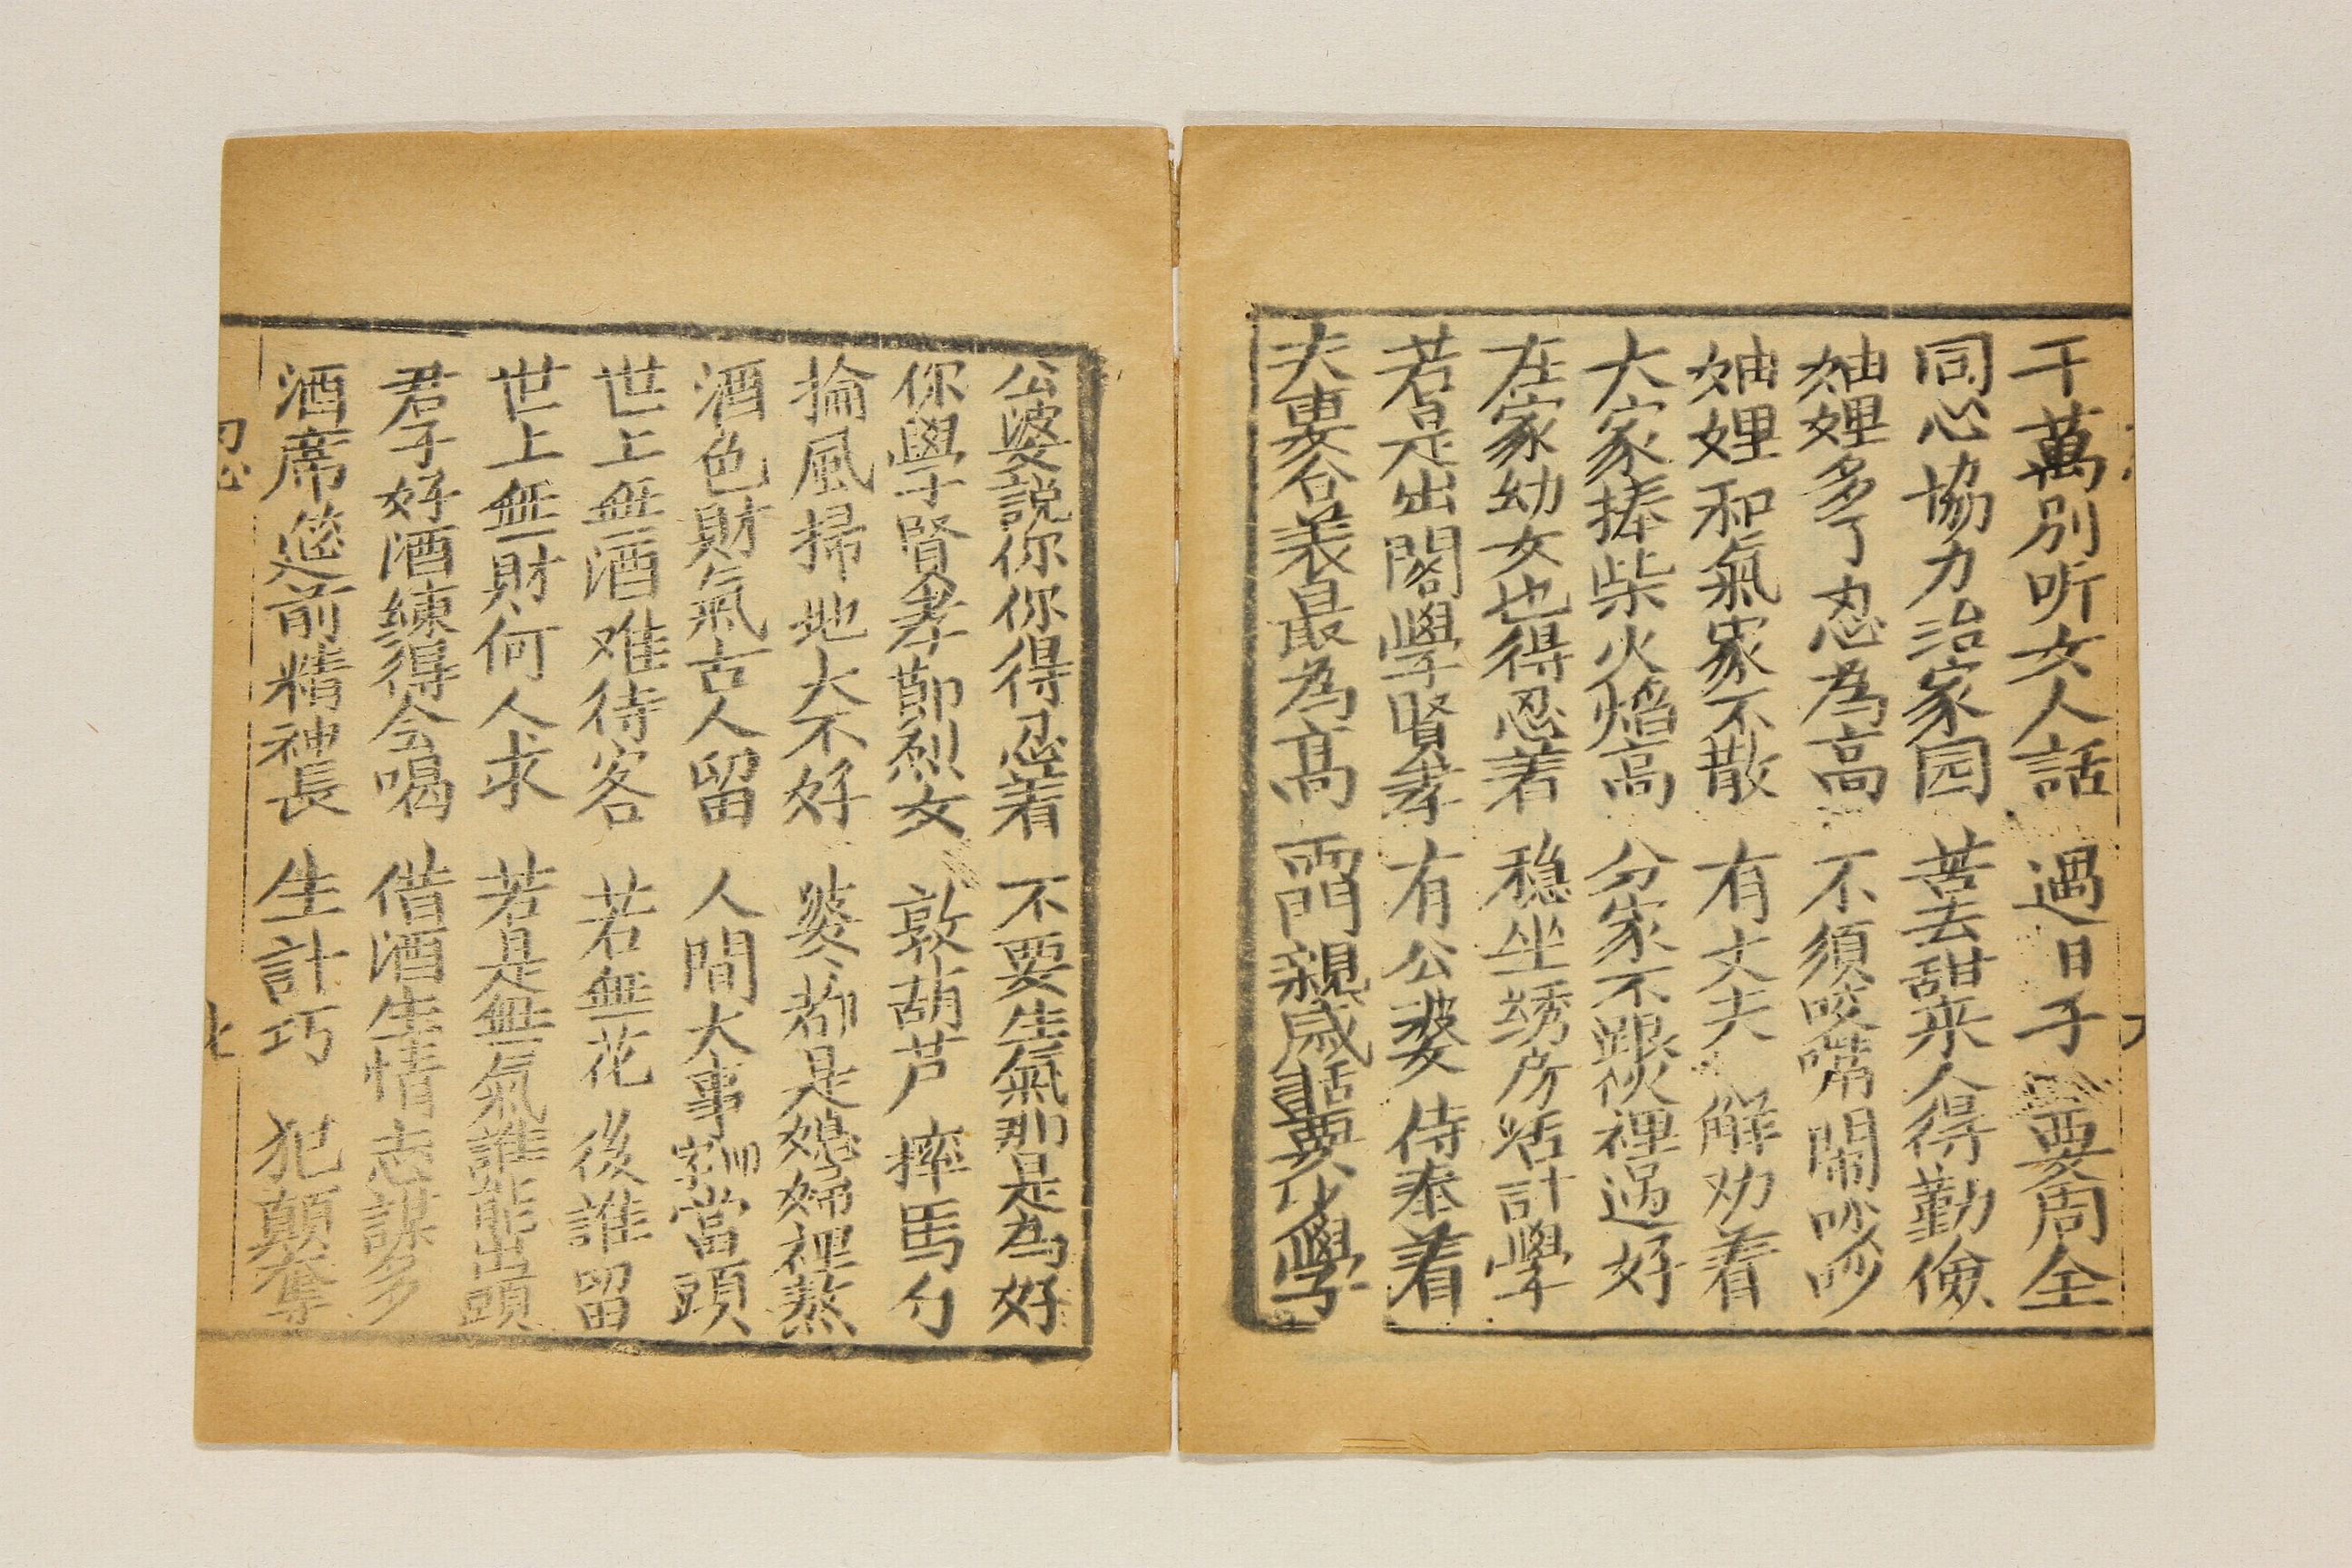 千萬別听女人話 過日子要周全
同心協力治家园 苦去甜来人得勤儉
妯娌多了忍為高 不須咬嘴鬧吵吵
妯娌和氣家不散 有丈夫解劝着
大家捧柴火焰高 分家不跟伙裡过好
在家幼女也得忍着 穏坐绣房活計學
若是出閣學賢孝 有公婆侍奉着
夫妻合美最為高 鬥親戚話要學
公婆説你你得忍着 不要生氣那是為好
你學賢孝節烈女 敦葫芦摔馬勺
掄風掃地大不好 婆都是媳婦裡熬
酒色財氣古人留 人間大事當頭
世上無酒难待客 若無花後誰留
世上無財何人求 若是無氣誰能出頭
君子好酒練得会喝 借酒生情志謀多
酒席筵前精神長 生計巧犯顛奪
七